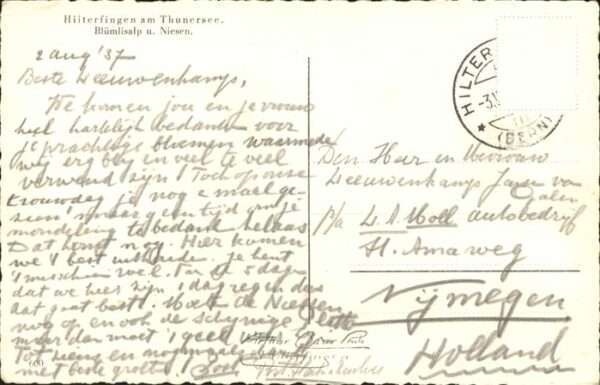 Hilterfingen am Thunersee.
Blümlisalp u. Niesen.
2 aug '37
Beste Leeuwenkamps,
We komen jou en je vrouw
heel hartelijk bedanken voor
je prachtige bloemen waarmede
wij erg blij en veel te veel
verwend zijn! Toch op onze
trouwdag je nog e maal ge-
zien maar geen tijd om je
mondeling te bedanken helaas
Dat komt nog. Hier komen
we 't best uitrusten. Je kent
't misschien wel. Tot de 5 dagen
dat we hier zijn 1 dag regen dus
dat gaat best! Moeten de Niessen
nog op en ook de Schynige Platte
maar dan moet 't
Tot ziens en nogmaals
met beste groeten.
HILTER
(BERN)
Den Heer en Mevrouw
Leeuwenkamps Jansen van
Galen
p/a W. A. Moll autobedrijf
St. Annaweg
Nijmegen
Holland